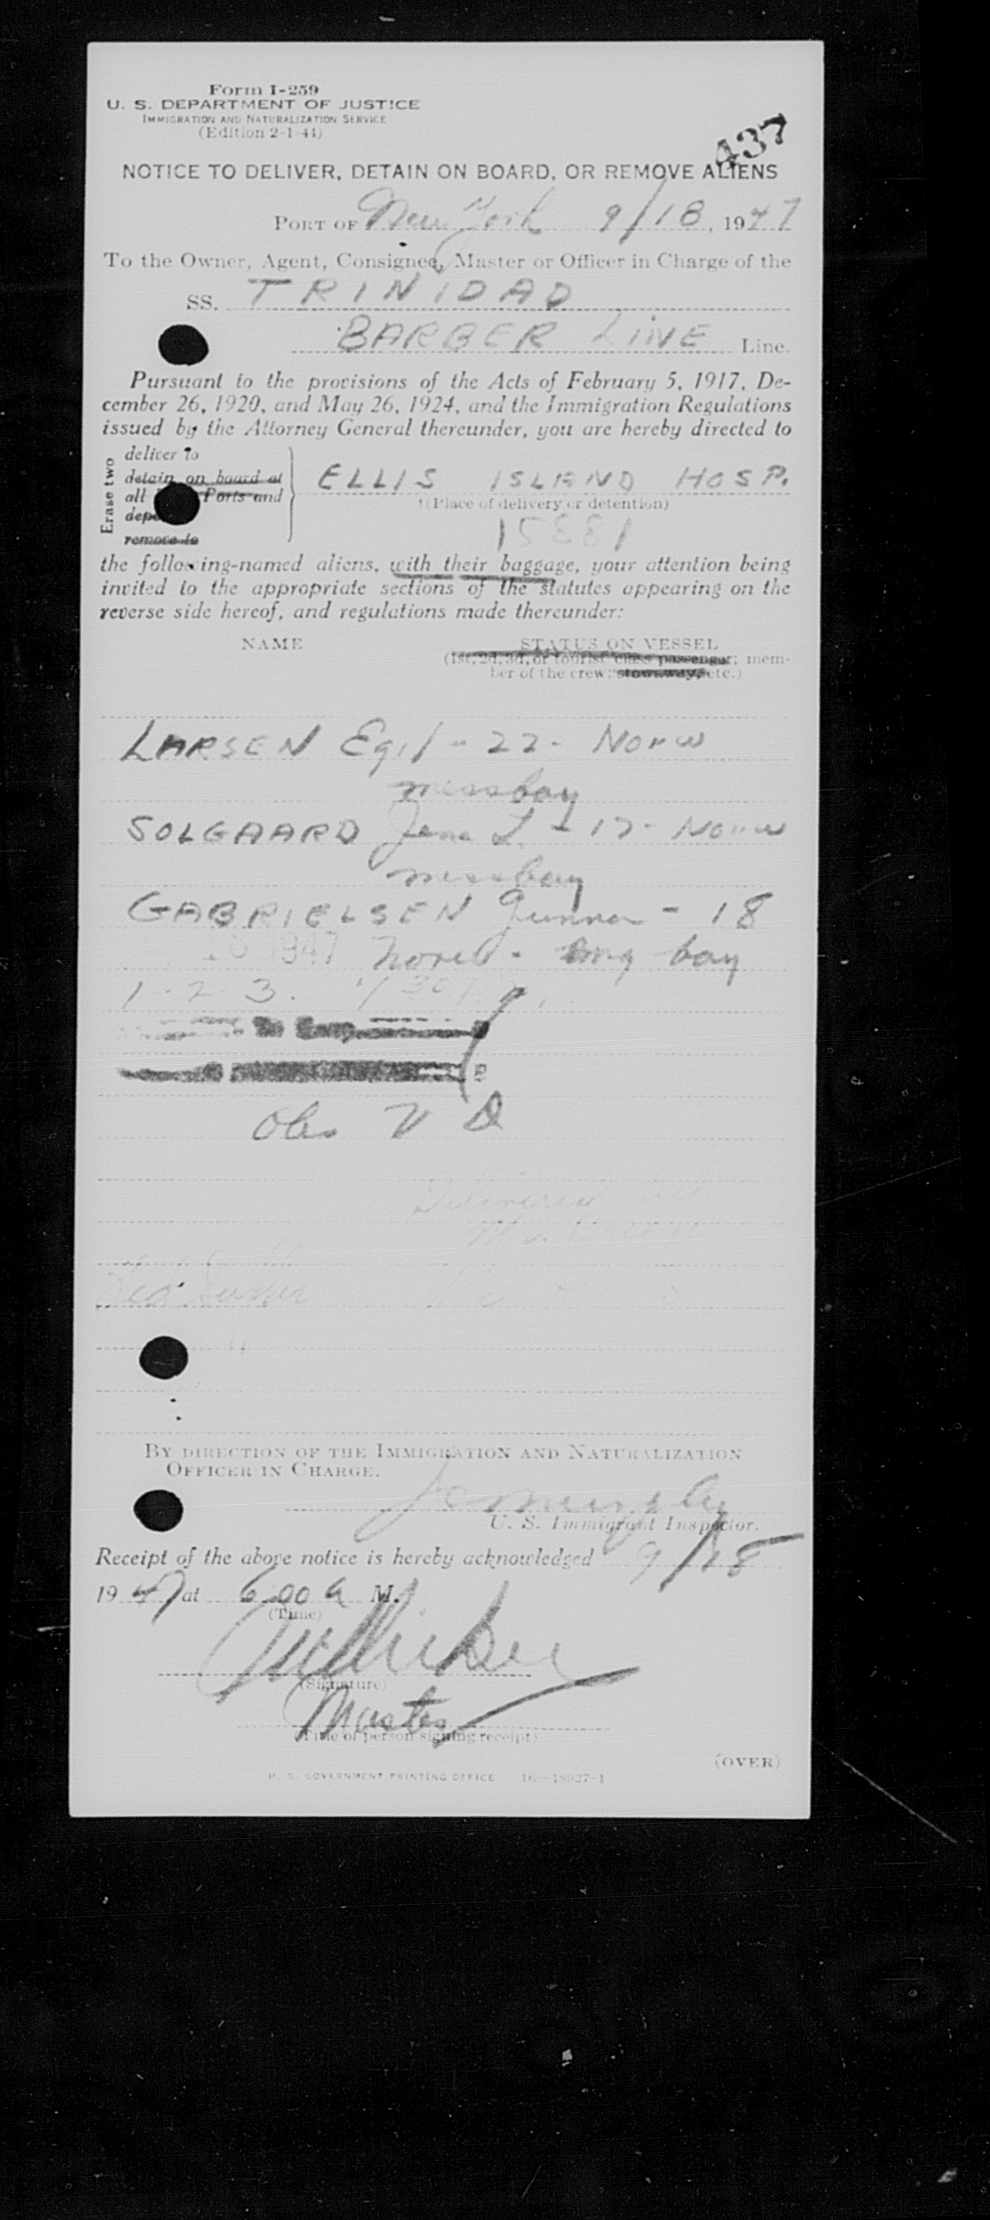 Form I-259
U. S. DEPARTMENT OF JUSTICE
IMMIGRATION AND NATURALIZATION SERVICE
(Edition 2-1-41)
437
NOTICE TO DELIVER, DETAIN ON BOARD, OR REMOVE ALIENS
PORT OF New York 9/18, 1947
To the Owner, Agent, Consignee, Master or Officer in Charge of the
SS. TRINIDAD
BARBER LINE Line.
Pursuant to the provisions of the Acts of February 5, 1917, De-
cember 26, 1920, and May 26, 1924, and the Immigration Regulations
issued by the Attorney General thereunder, you are hereby directed to
Erase two
deliver to
detain on board at
all Ports and
remove to
ELLIS ISLAND HOSP.
†(Place of delivery or detention)
15881
the following-named aliens, with their baggage, your attention being
invited to the appropriate sections of the statutes appearing on the
reverse side hereof, and regulations made thereunder:
NAME STATUS ON VESSEL
(1st, 2d, 3d, or tourist class passenger; mem-
ber of the crew; stowaway, etc.)
LARSEN Egil - 22 - Norw
messboy
SOLGAARD Jens L - 17 - Norw
messboy
GABRIELSEN Gunnar - 18
1947 Norw - boy
1 - 2 - 3.
Obs V D
Delivered
BY DIRECTION OF THE IMMIGRATION AND NATURALIZATION
OFFICER IN CHARGE.
Murphy
U. S. Immigrant Inspector.
Receipt of the above notice is hereby acknowledged 9/18
1947 at 6 00 a M.
(Time)
(Signature)
Master
(Title of person signing receipt)
(OVER)
U. S. GOVERNMENT PRINTING OFFICE 16—18927-1